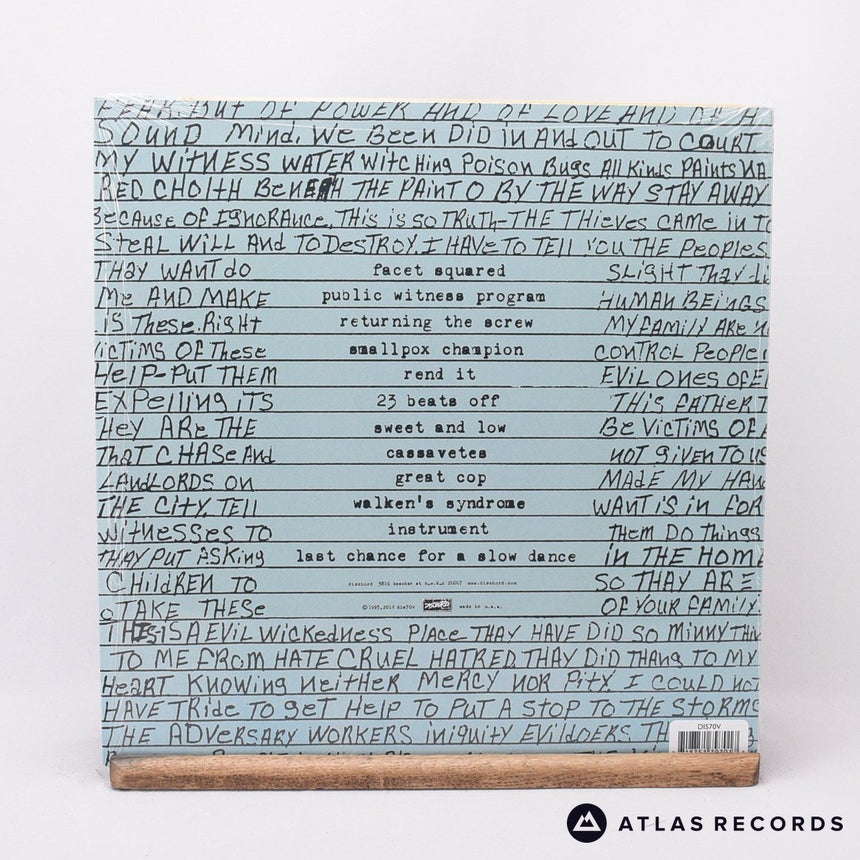 FEAR. BUT OF POWER AND OF LOVE AND OF A
SOUND MIND. WE BEEN DID IN AND OUT TO COURT.
MY WITNESS WATER WITCHING POISON BUGS ALL KINDS PAINTS
RED CHOLTH BENEATH THE PAINT O BY THE WAY STAY AWAY
BECAUSE OF IGNORANCE. THIS IS SO TRUTH-THE THIEVES CAME IN TO
STEAL WILL AND TO DESTROY. I HAVE TO TELL YOU THE PEOPLES
THAY WANT do facet squared SLIGHT THAY
ME AND MAKE public witness program HUMAN BEINGS
IS THESE. RIGHT returning the screw MY FAMILY ARE
VICTIMS OF THESE smallpox champion CONTROL PEOPLE
HELP-PUT THEM rend it EVIL ONES OF
EXPELLING ITS 23 beats off THIS FATHER
HEY ARE THE sweet and low BE VICTIMS OF
THAT CHASE AND cassavetes NOT GIVEN TO US
LANDLORDS ON great cop MADE MY HAN
THE CITY. TELL walken's syndrome WANT IS IN FOR
WITNESSES TO instrument THEM DO THINGS
THAY PUT ASKING last chance for a slow dance IN THE HOME
CHILDREN TO dischord 3819 beecher st n.w. d.c 20007 www.dischord.com SO THAY ARE
TAKE THESE ©1993, 2015 dis70V DISCHORD made in u.s.a. OF YOUR FAMILY
THIS IS A EVIL WICKEDNESS PLACE THAY HAVE DID SO MINNY THIN
TO ME FROM HATE CRUEL HATRED. THAY DID THANG TO MY
HEART KNOWING NEITHER MERCY NOR PITY. I COULD NOT
HAVE TRIDE TO GET HELP TO PUT A STOP TO THE STORMS
THE ADVERSARY WORKERS INIQUITY EVILDOERS. TH
DIS70V
ATLAS RECORDS